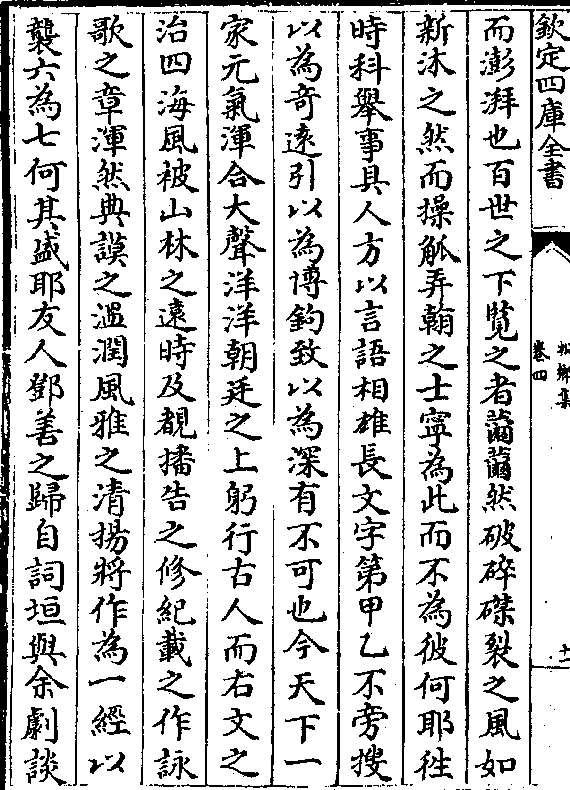 欽定四庫全書
松鄉集
卷四
十一
而澎湃也百世之下覽之者薾薾然破碎磔裂之風如
新沐之然而操觚弄翰之士寧為此而不為彼何耶徃
時科舉事具人方以言語相雄長文字第甲乙不旁搜
以為奇遠引以為博鈎致以為深有不可也今天下一
家元氣渾合大聲洋洋朝廷之上躬行古人而右文之
治四海風被山林之遠時及覩播告之修紀載之作詠
歌之章渾然典謨之溫潤風雅之清揚將作為一經以
襲六為七何其盛耶友人鄧善之歸自詞垣與余劇談